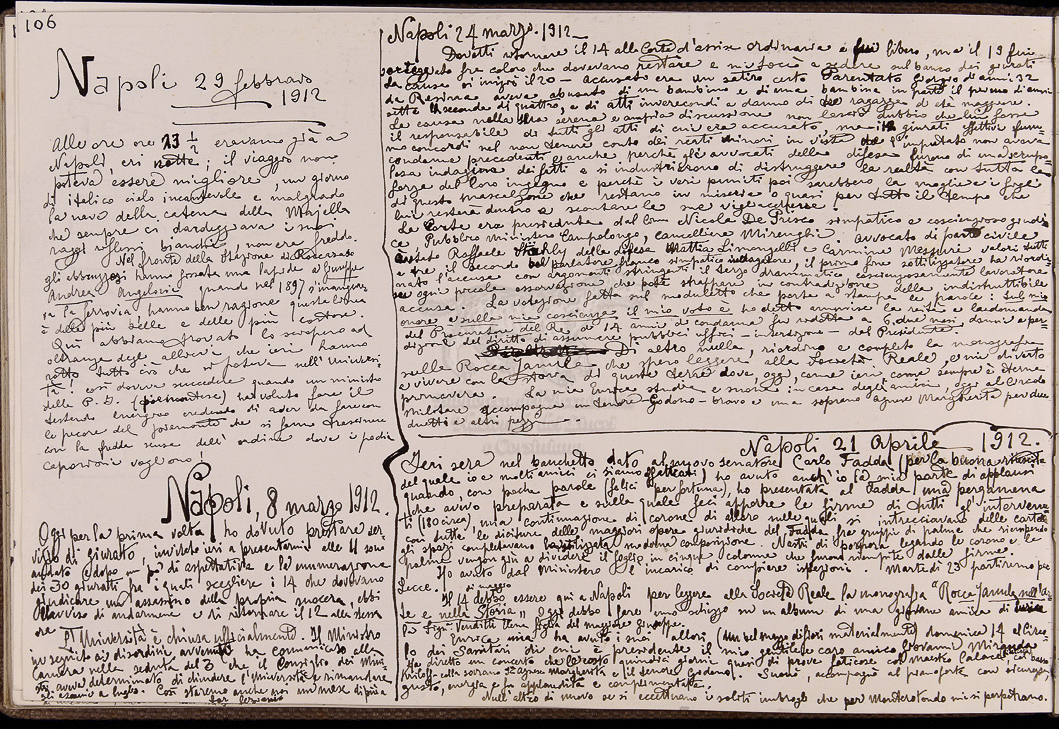 106
Napoli 29 febbraio
1912
Alle ore ore 23 ½ eravamo già a
Napoli, ieri notte; il viaggio non
poteva essere migliore, un giorno
di italico cielo incantevole e malgrado
la neve della catena della Majella
che sempre ci dardeggiava i suoi
raggi riflessi bianchi, non era freddo.
Nel fronte della Stazione di
gli abbruzzesi hanno posata una lapide a Giuseppe
Andrea Angeloni quando nel 1897
la ferrovia; hanno ben ragione questa linea
è delle più belle e delle più costose.
Qui abbiamo trovato lo sciopero ad
oltranza degli allievi che ieri hanno
rotto tutto ciò che si poteva nell'Universi-
tà! così doveva succedere quando un ministro
della P. I. ha voluto fare il
testardo energico credendo di aver da fare con
le pecore del che si fanno trascinare
con la frusta senza dell'ordine dove i pochi
caporioni vogliono!
Napoli, 8 marzo 1912.
Oggi per la prima volta ho dovuto prestare ser-
vizio di giurato, invitato ieri a presentarmi alle 11 sono
andato e dopo un po' di aspettativa e la numerazione
dei 30 giurati fra i quali scegliere i 14 che dovevano
giudicare un assassino della propria suocera, ebbi
l'avviso di andarmene e di ritornare il 12 alla stessa
ora.
L'Università è chiusa ufficialmente. Il Ministro
in seguito ai disordini avvenuti ha comunicato alla
Camera nella seduta del 3 che il Consiglio dei Mini-
stri aveva determinato di chiudere l'Università e rimandare
gli esami a luglio. Così staremo anche noi un mese di più
Napoli 24 marzo. 1912_
Dovetti ritornare il 14 alla Corte d'assise ordinaria e fui libero, ma il 19 fui
sorteggiato fra coloro che dovevano restare e mi toccò a sedere sul banco dei giurati
La causa si iniziò il 20 – accusato era un satiro certo Parentato Giorgio d'anni 32
da Resina aveva abusato di un bambino e di una bambina in il primo di anni
sette il secondo di quattro, e di atti inverecondi a danno di due ragazze d'età maggiore.
La causa nella sua serena e ampia discussione non lasciò dubbio che lui fosse
il responsabile di tutti gli atti di cui era accusato, ma i giurati effettivi furo-
no concordi nel non tenere conto dei reati minori in vista che l'imputato non aveva
condanne precedenti e anche perché gli avvocati della difesa furono di una scrupo-
losa indagine dei fatti e si industriarono di distruggere la realtà con tutta la
forza del loro ingegno e perché i veri puniti poi sarebbero la moglie e i figli
di questo mascalzone che restano in miseria o quasi per tutto il tempo che
lui resterà dentro a scontare la sua vigliaccheria.
La Corte era presieduta dal Com. Nicola De Prisco simpatico e coscienzioso giudi-
ce, Pubblico ministero Campolongo, cancelliere Mirenghi avvocato di parte civile
Raffaele della difesa Mattia Limongelli e Carmine valori tutti
e tre, il secondo bel parlatore franco simpatico, il primo fine sottilizzatore ha
l'accusa con argomenti stringenti il terzo drammatico coscienziosamente lavoratore
su ogni piccola osservazione che potè strappare in contradizione della indistruttibile
accusa. La votazione fatta sul moduletto che porta a stampa le parole: sul mio
onore e sulla mia coscienza il mio voto è ... ho detto ammise la reità e la domanda
del Procuratore del Re a 14 anni di condanna fu ridotta a 6, due mesi
del diritto di assumere pubblici uffici – interdizione – dal Presidente.
Di altro nulla, riordino e completo la monografia
sulla Rocca Janula che spero a leggere alla Società Reale, e mi diverto
a vivere con la storia di queste terre dove, oggi, come ieri come sempre è eterna
primavera. La mia Enrica studia e suona in casa degli amici, oggi al Circolo
militare accompagna un tenore Godono – bravo e una soprano Agnese Margherita per due
duetti e altri pezzi
Napoli 21 Aprile 1912.
Ieri sera nel banchetto dato al nuovo senatore Carlo Fadda (per la buona riuscita
del quale io e molti amici ci siamo affaticati) ho avuto anch'io la mia parte di applausi
quando, con poche parole (felici per fortuna), ho presentata al Fadda una pergamena
che avevo preparata e sulla quale feci apporre le firme di tutti gl'intervenu-
ti (180 circa), una continuazione di corone di alloro nelle quali si intrecciavano delle cartel-
con tutte le diciture delle maggiori opere giuridiche del Fadda fra gruppi di palme che riempiendo
gli spazi completavano la modesta composizione. Nastri di porpora legando le corone e le
palme vengono a dividere il foglio in cinque colonne che furono riempite dalle firme.
Ho avuto dal Ministero l'incarico di compiere ispezioni. Martedì 23 partiremo per
Lecce.
Il 14 maggio debbo essere qui a Napoli per leggere alla Società Reale la monografia "Rocca Janula nell'Ar-
te e nella Storia". Oggi debbo fare uno schizzo su un album di una giovane amica di
la Sig.na Venditti Elena figlia del maggiore Giuseppe.
Enrica mia ha avuto i suoi allori (un bel mazzo di fiori materialmente) domenica 14 al Circo-
lo dei Sanitari di cui è presidente il mio gentile e caro amico Giovanni Miranda
Ha diretto un concerto che le costò quindici giorni quasi di prove faticose col maestro
colla soprano Agnese Margherita e il tenore Godono. Suonò, accompagnò al pianoforte con
gusto, energia e fu applaudita e complimentata.
Null'altro di nuovo se si eccettuano i soliti imbrogli che per Monterotondo mi si perpetrano.